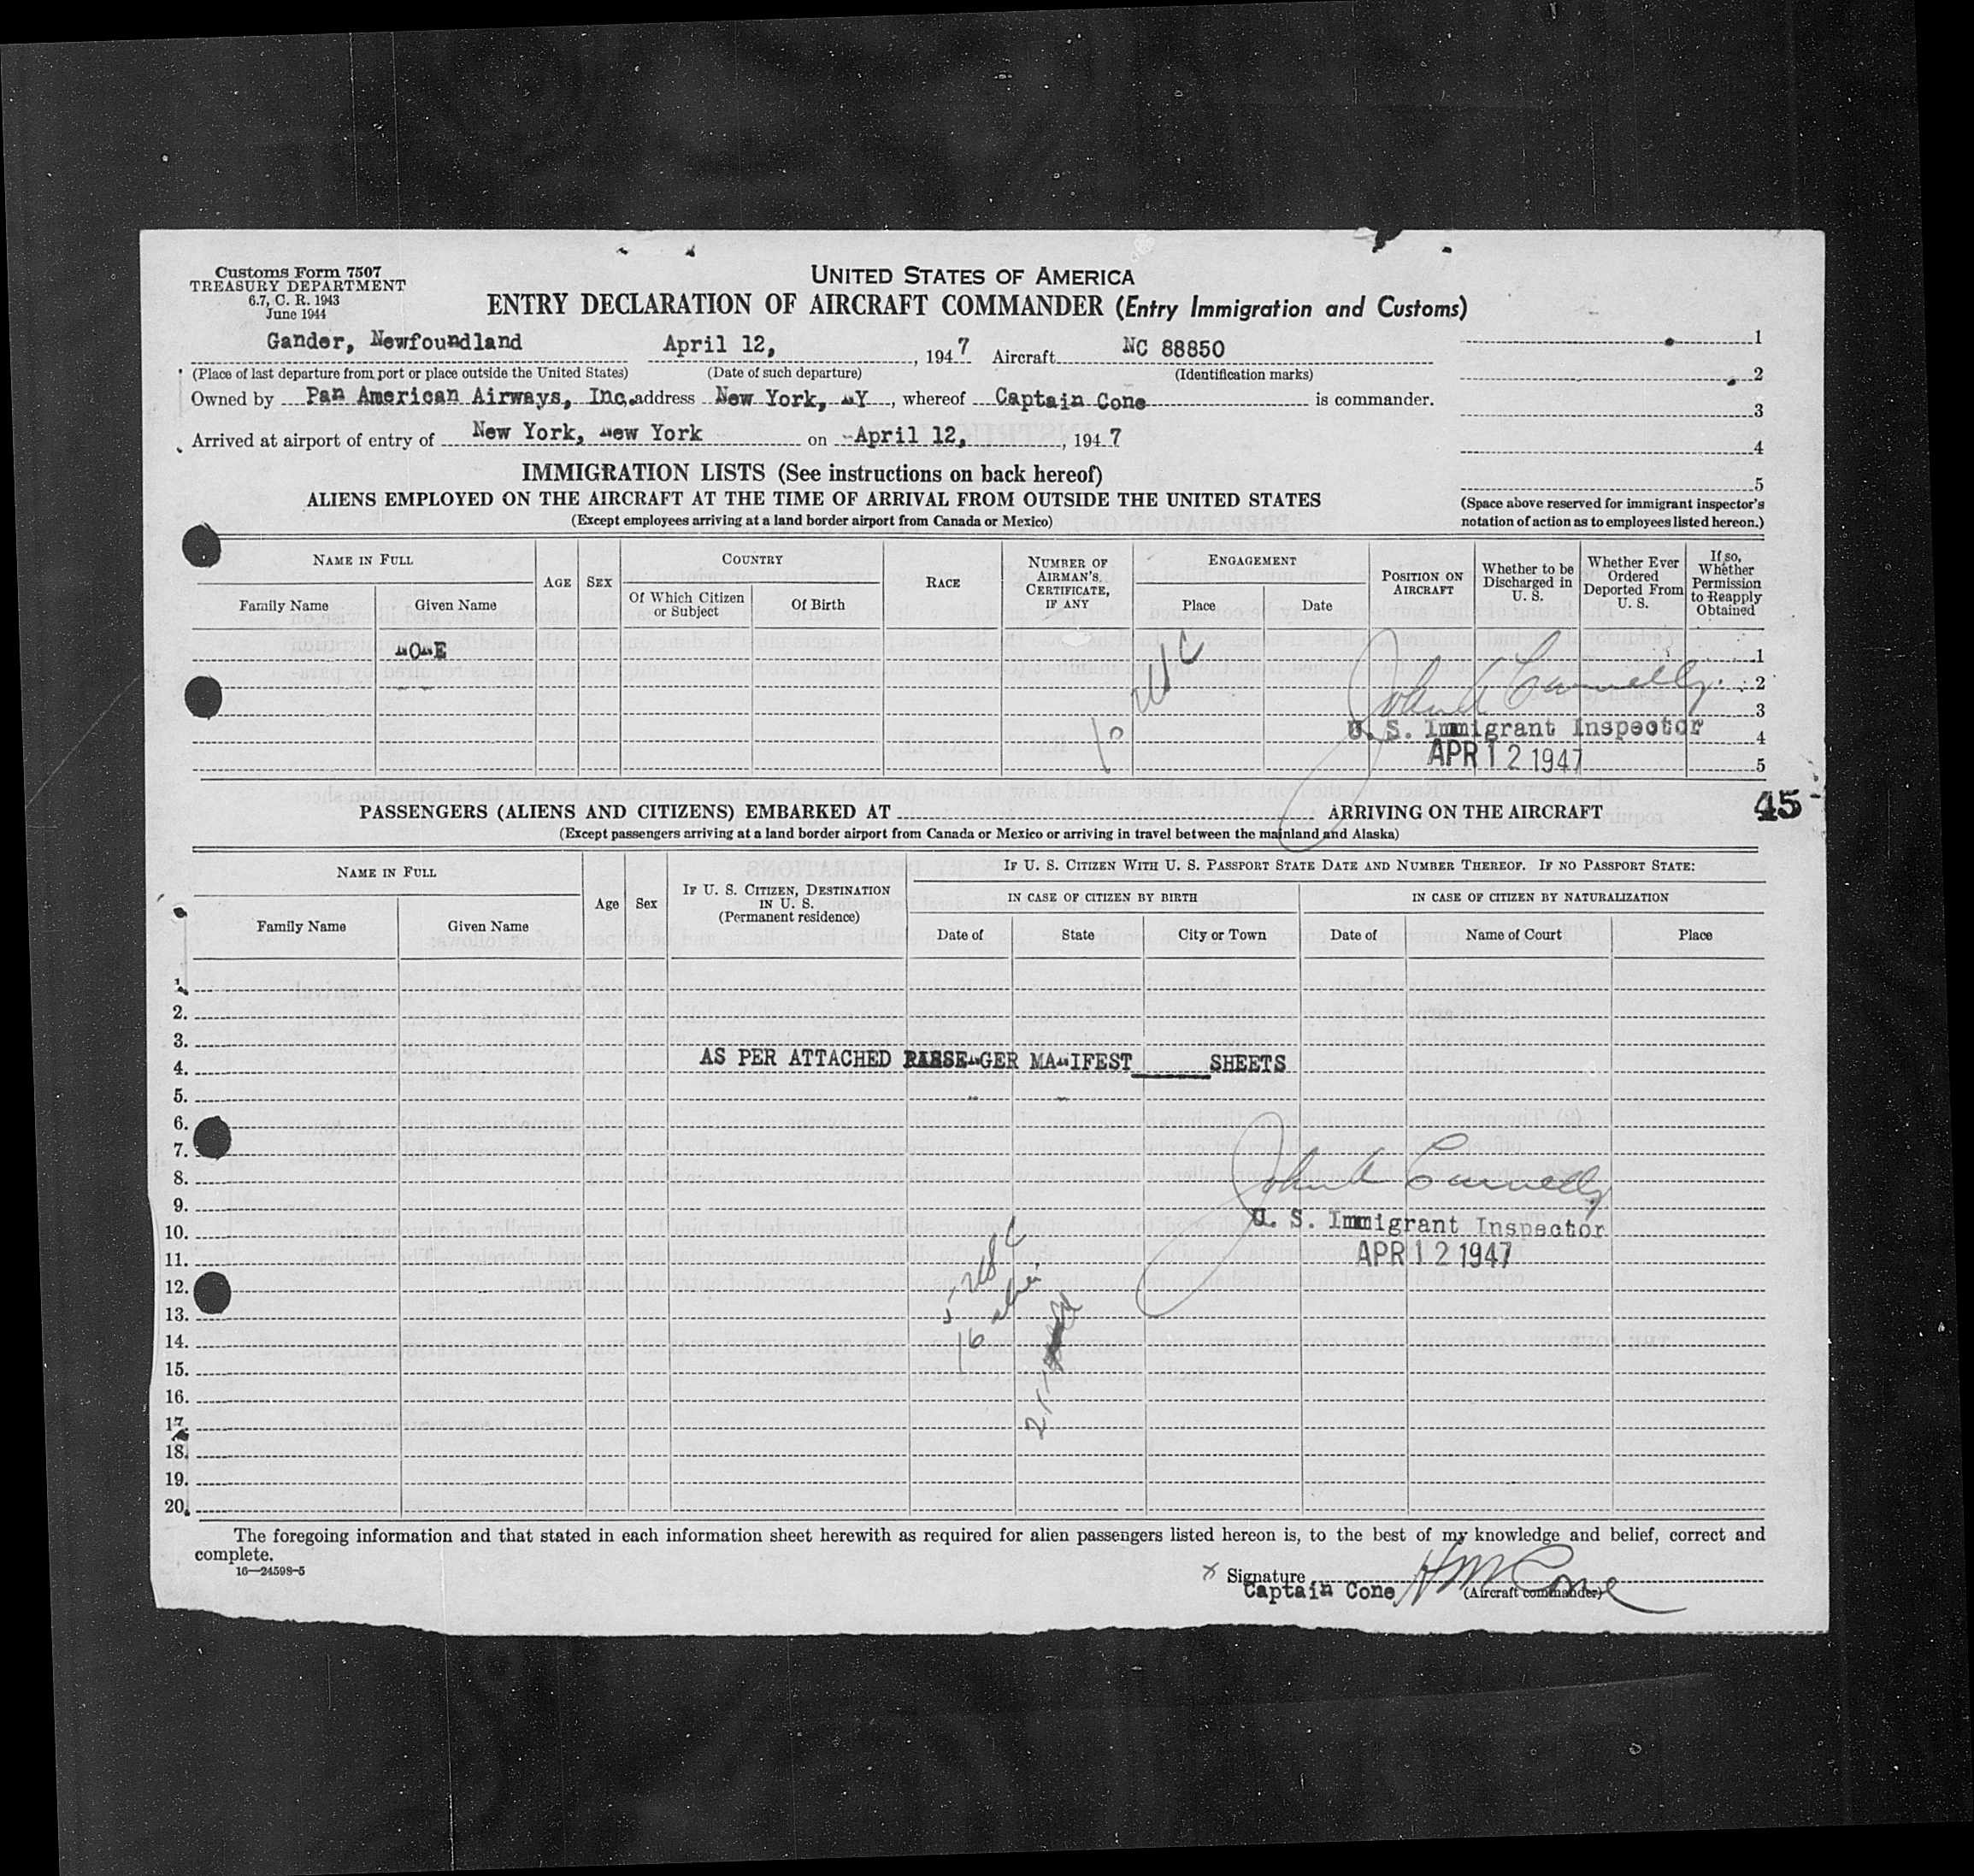 Customs Form 7507
TREASURY DEPARTMENT
6.7, C. R. 1943
June 1944
UNITED STATES OF AMERICA
ENTRY DECLARATION OF AIRCRAFT COMMANDER (Entry Immigration and Customs)
Gander, Newfoundland April 12, , 1947 Aircraft NC 88850
(Place of last departure from port or place outside the United States) (Date of such departure) (Identification marks)
Owned by Pan American Airways, Inc. address New York, NY, whereof Captain Cone is commander.
Arrived at airport of entry of New York, New York on April 12, , 1947
1
2
3
4
5
(Space above reserved for immigrant inspector's
notation of action as to employees listed hereon.)
IMMIGRATION LISTS (See instructions on back hereof)
ALIENS EMPLOYED ON THE AIRCRAFT AT THE TIME OF ARRIVAL FROM OUTSIDE THE UNITED STATES
(Except employees arriving at a land border airport from Canada or Mexico)
NAME IN FULL
Family Name Given Name
AGE SEX
COUNTRY
Of Which Citizen or Subject
Of Birth
RACE
NUMBER OF AIRMAN'S CERTIFICATE, IF ANY
ENGAGEMENT
Place Date
POSITION ON AIRCRAFT
Whether to be Discharged in U. S.
Whether Ever Ordered Deported From U. S.
If so, Whether Permission to Reapply Obtained
NONE 1
2
3
4
5
10 USC
John A Connelly
U. S. Immigrant Inspector
APR 12 1947
PASSENGERS (ALIENS AND CITIZENS) EMBARKED AT ARRIVING ON THE AIRCRAFT 45
(Except passengers arriving at a land border airport from Canada or Mexico or arriving in travel between the mainland and Alaska)
NAME IN FULL
Family Name Given Name
Age Sex
IF U. S. CITIZEN, DESTINATION IN U. S. (Permanent residence)
IF U. S. CITIZEN WITH U. S. PASSPORT STATE DATE AND NUMBER THEREOF. IF NO PASSPORT STATE:
IN CASE OF CITIZEN BY BIRTH IN CASE OF CITIZEN BY NATURALIZATION
Date of State City or Town Date of Name of Court Place
1.
2.
3.
4. AS PER ATTACHED PASSENGER MANIFEST SHEETS
5.
6.
7.
8.
9.
10.
11.
12.
13.
14.
15.
16.
17.
18.
19.
20.
John A Connelly
U. S. Immigrant Inspector
APR 12 1947
5 USC
16 alien
21
The foregoing information and that stated in each information sheet herewith as required for alien passengers listed hereon is, to the best of my knowledge and belief, correct and
complete.
16—24598-5
x Signature HM Cone
Captain Cone (Aircraft commander)